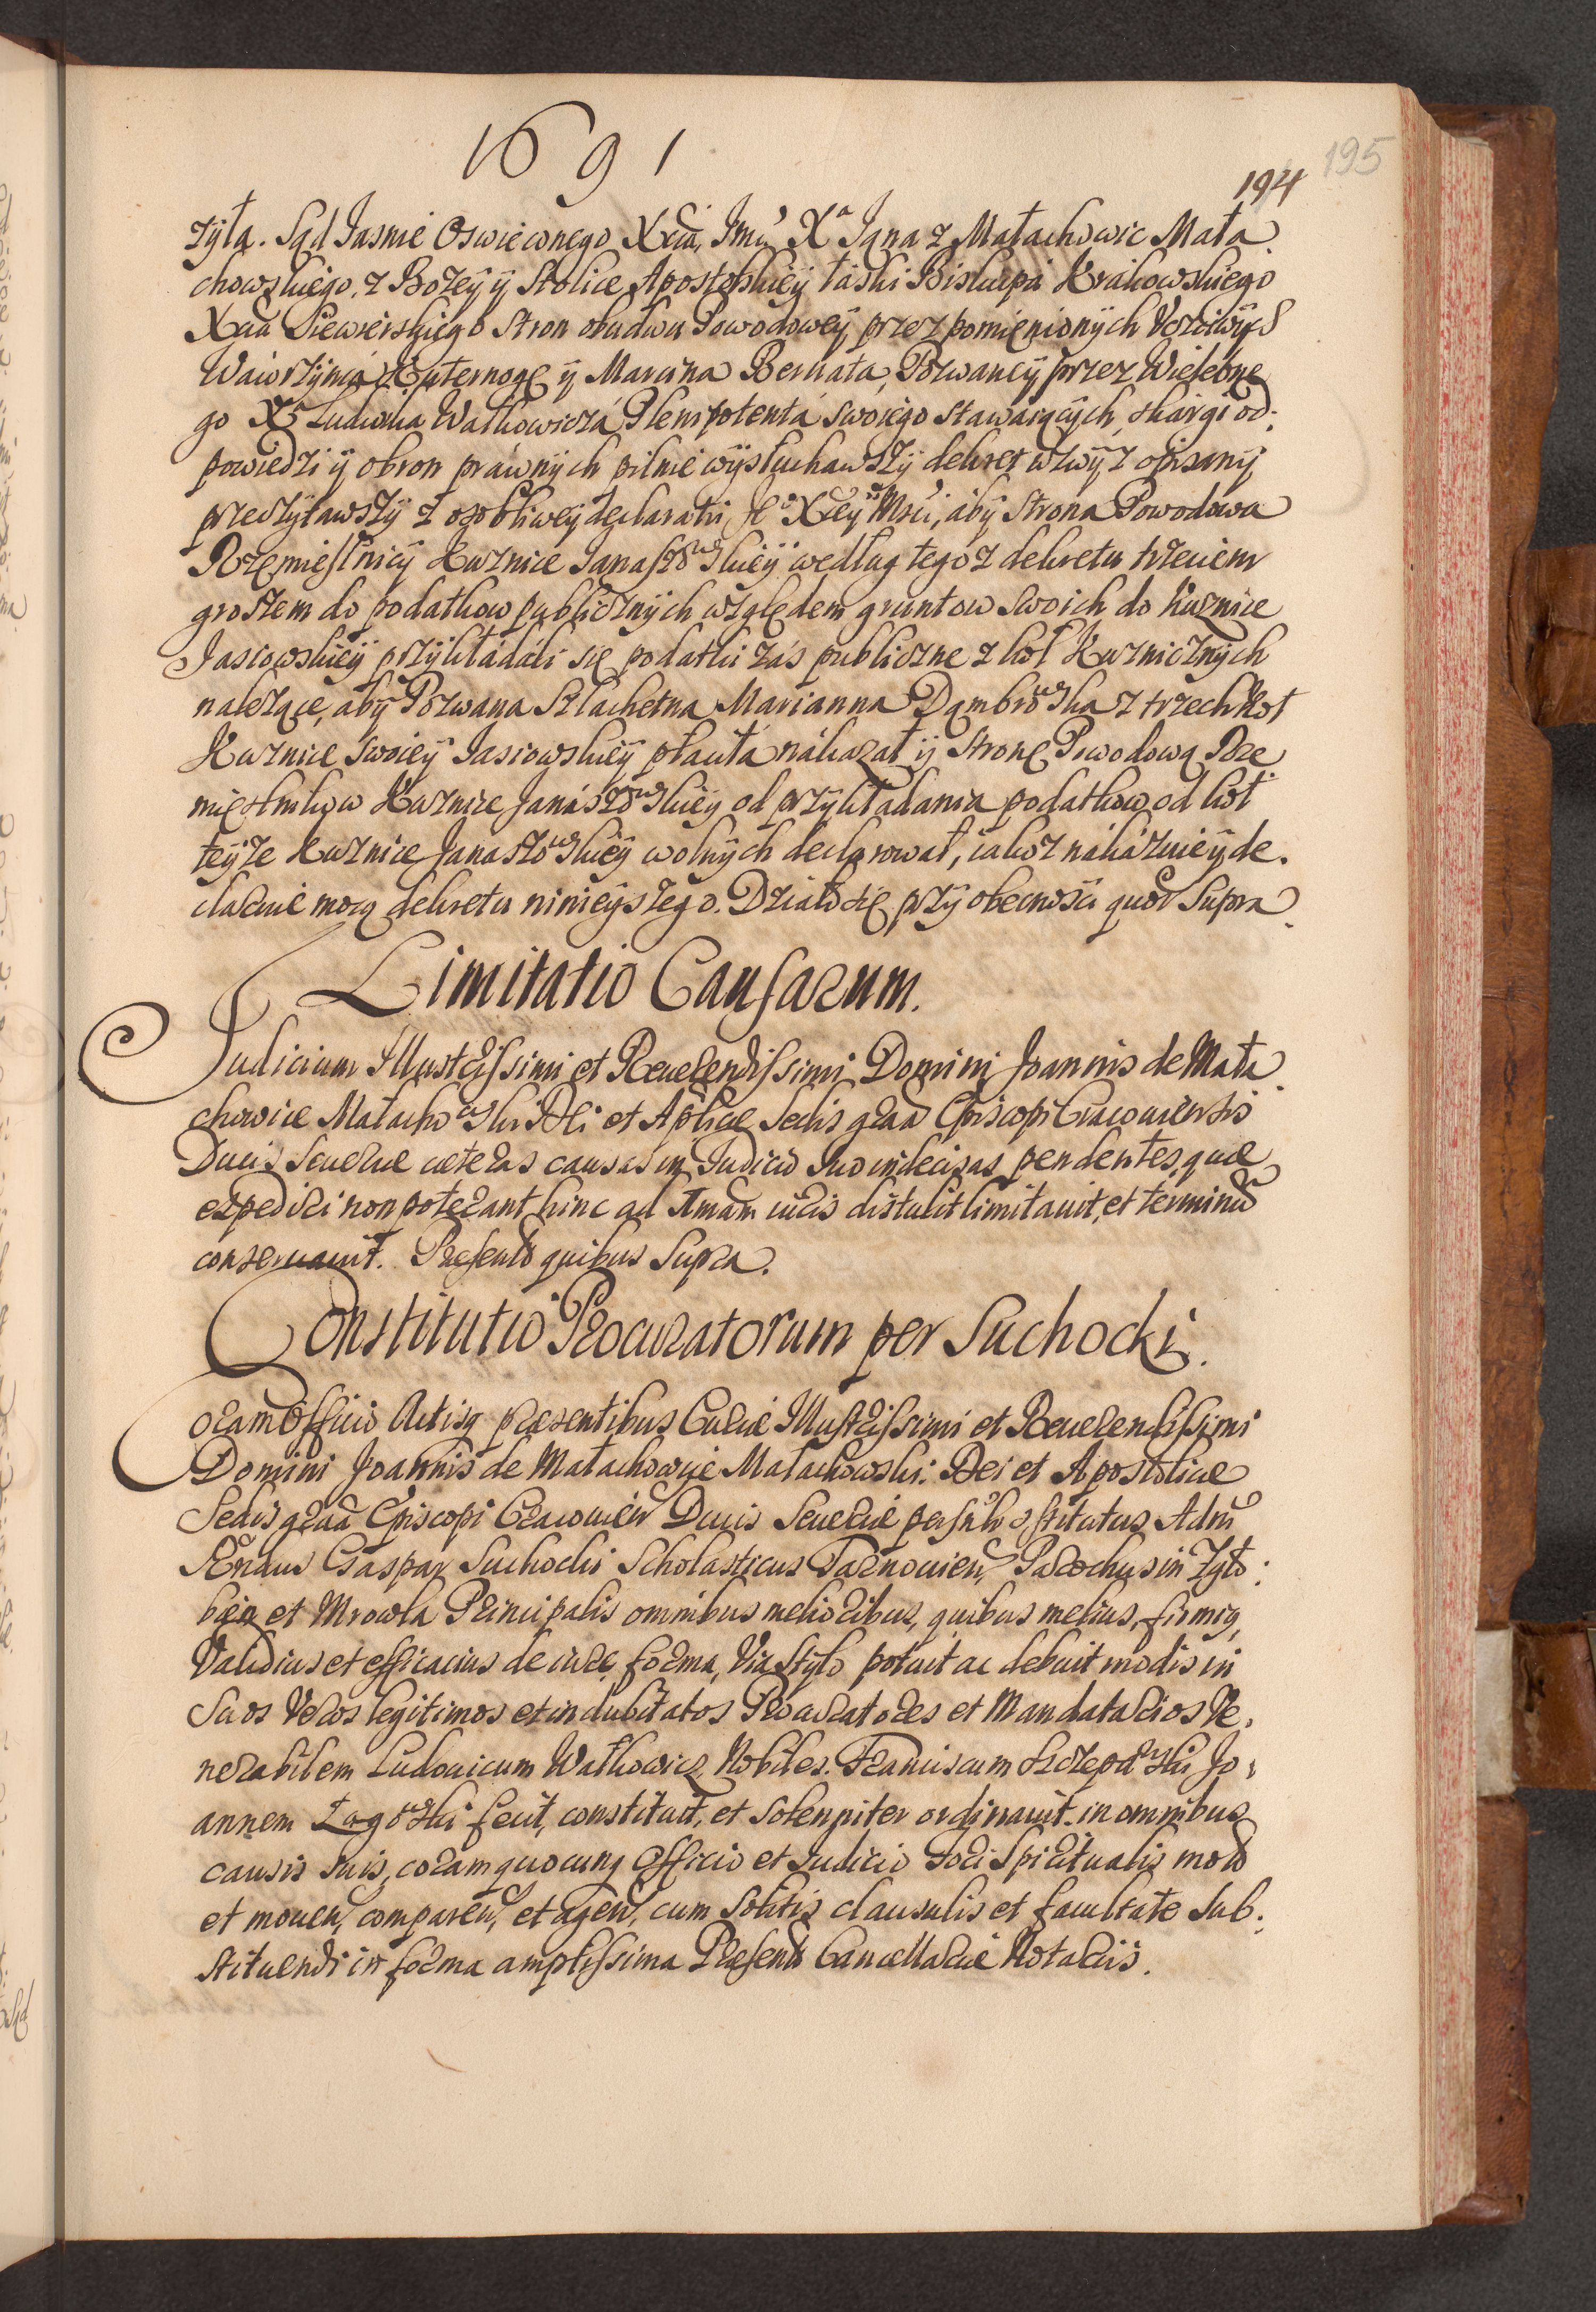 1691
195
194
żyła. Sąd Jasnie Oswieconego Xcia, Jmci Xa Jana z Małachowic Mała
chowskiego, z Bożey y Stolice Apostolskiey łaski Biskupa Krakowskiego
Xcia Siewierskiego Stron obudwu Powodowey przez pomienionych Uczciwych
Wawrzynca Kuternogę y Marcina Bernata, Pozwaney przez Wielebne
go Xa Ludwika Wałkowicza Plenipotenta swoiego stawaiących, skargi od:
powiedzi y obron prawnych pilnie wysłuchawszy dekret wzwyż opisany
przeczytawszy z osobliwey declaratii, Je° Xcey Msci, aby Strona Powodowa
Rzemieslnicy Kuznice Janaszowskiey według tego z dekretu trzecim
groszem do podatkow publicznych względem gruntow swoich do kuznice
Jasiowskiey przykładali się podatki zás publiczne z koł Kuznicznych
należące, aby Pozwana Szlachetna Marianna Dąmbrowska z trzech Koł
Kuznice swoiey Jasiowskiey płaciła nákazał y Stronę Powodową Rze
mięslnikow Kuznice Janászowskiey od przykładania podatkow od kół
teyże Kuznice Janaszowskiey wolnych declarował, iakoż nákázuie y de.
claruie mocą dekretu ninieyszego. Działo się przy obecności quor Supra
Limitatio Causarum.
Judicium Illustrissimi et Reuerendissimi Domini Joannis de Mała
chowice Małachowski Dei et Aplicae Sedis graã Episcopi Cracouiensis
Ducis Seueriae caeteras causas in Judicio suo indecisas pendentes, quae
expediri non poterant hinc ad Imam iuris distulit limitauit, et terminũ
conseruauit. Praesentib quibus Supra.
Constitutio Procuratorum per Suchocki.
Coram Officio Actisq praesentibus Curiae Illustrissimi et Reuerendissimi
Domini Joannis de Małachowice Małachowski Dei et Apostolicae
Sedis graã Episcopi Cracouien Ducis Seueriae constitutus Adm
Rndus Gaspar Suchocki Scholasticus Tarnouien, Parochus in Zgło:
bien et Mrowla Principalis omnibus melioribus, quibus melius, firmiq,
Validius et efficacius de iure, forma, Via Stylo potuit ac debuit modis in
Suos Veros legitimos et indubitatos Procuratores et Mandatarios Ve.
nerabilem Ludouicum Wałkowicz, Nobiles. Franciscum Szczepanski Jo,
annem Łagowski fecit, constituit, et Solenniter ordinauit. in omnibus
causis suis, coram quocunq Officio et Judicio fori Spiritualis mot
et mouen, comparen, et agen, cum Solitis clausulis et facultate Sub.
stituendi in forma amplissima Praesentib Cancellariae Notariis.